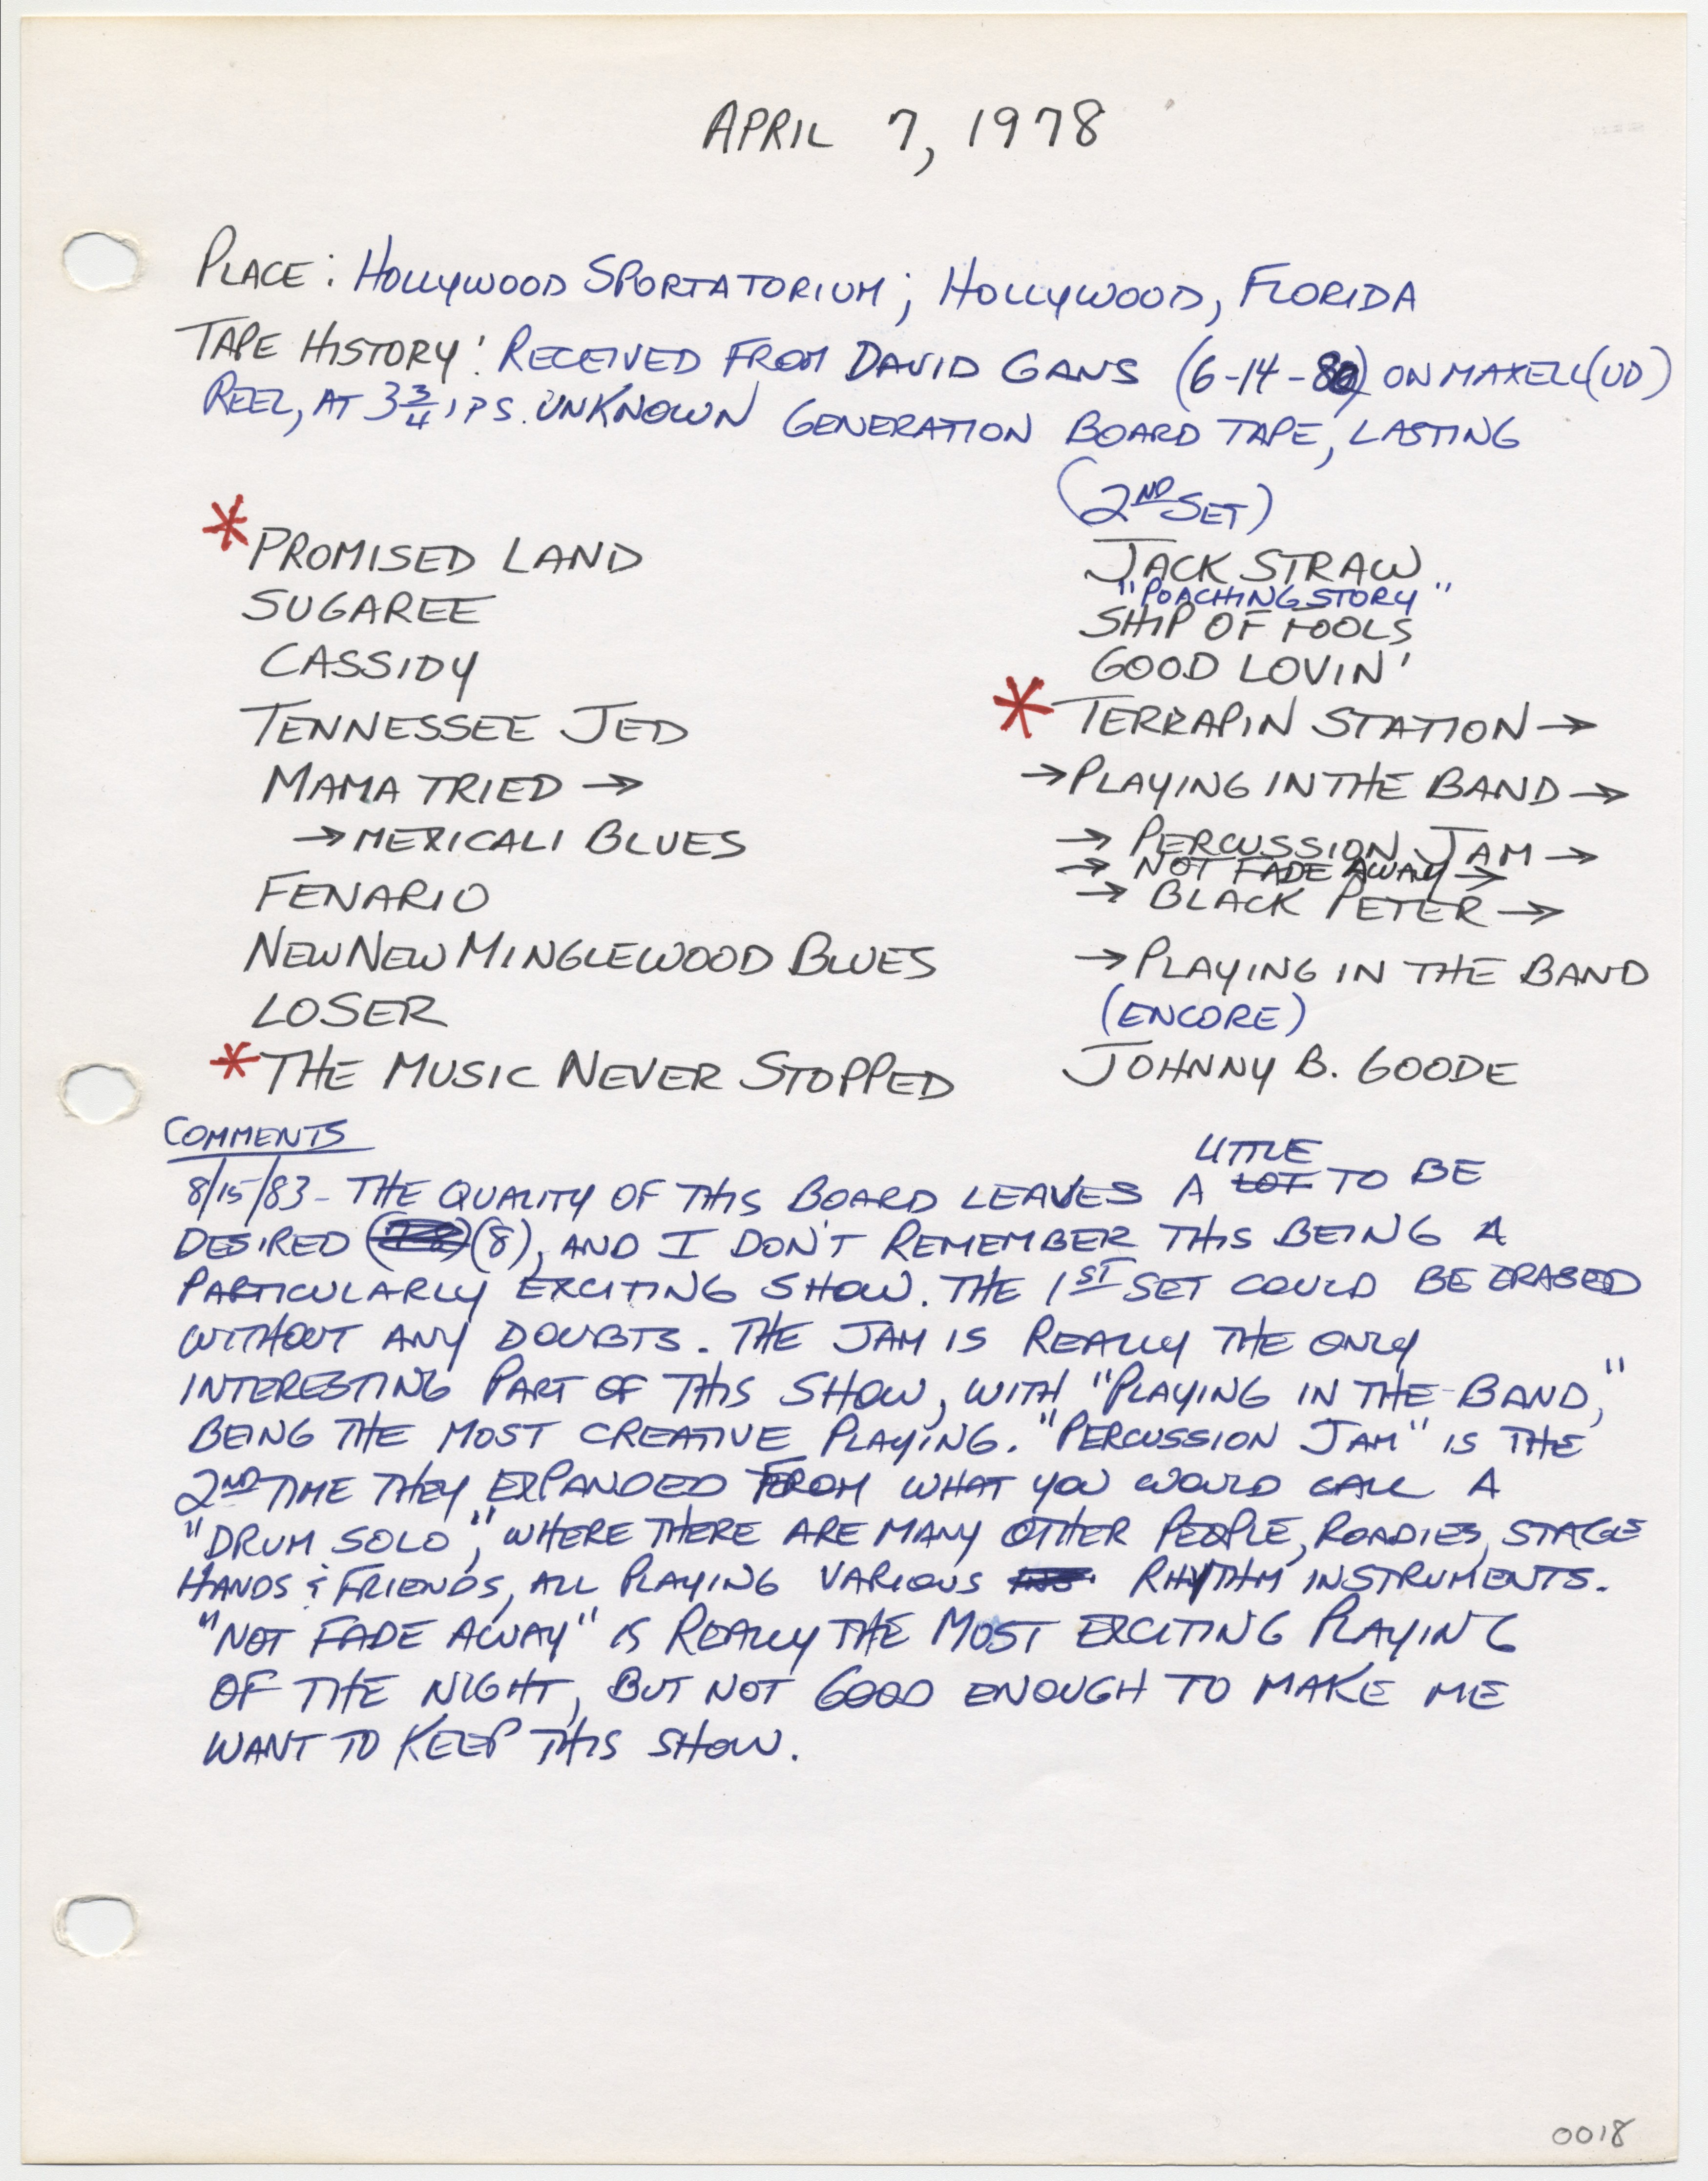 APRIL 7, 1978
PLACE: HOLLYWOOD SPORTATORIUM; HOLLYWOOD, FLORIDA
TAPE HISTORY: RECEIVED FROM DAVID GANS (6-14-80) ON MAXELL (UD)
REEL, AT 3 3/4 IPS. UNKNOWN GENERATION BOARD TAPE, LASTING
* PROMISED LAND
SUGAREE
CASSIDY
TENNESSEE JED
MAMA TRIED →
→ MEXICALI BLUES
FENARIO
NEW NEW MINGLEWOOD BLUES
LOSER
* THE MUSIC NEVER STOPPED
(2ND SET)
JACK STRAW
"POACHING STORY"
SHIP OF FOOLS
GOOD LOVIN'
* TERRAPIN STATION →
→ PLAYING IN THE BAND →
→ PERCUSSION JAM →
→ NOT FADE AWAY →
→ BLACK PETER →
→ PLAYING IN THE BAND
(ENCORE)
JOHNNY B. GOODE
COMMENTS
LITTLE
8/15/83 - THE QUALITY OF THIS BOARD LEAVES A LOT TO BE
DESIRED (8), AND I DON'T REMEMBER THIS BEING A
PARTICULARLY EXCITING SHOW. THE 1ST SET COULD BE ERASED
WITHOUT ANY DOUBTS. THE JAM IS REALLY THE ONLY
INTERESTING PART OF THIS SHOW, WITH "PLAYING IN THE BAND,"
BEING THE MOST CREATIVE PLAYING. "PERCUSSION JAM" IS THE
2ND TIME THEY EXPANDED FROM WHAT YOU WOULD CALL A
"DRUM SOLO", WHERE THERE ARE MANY OTHER PEOPLE, ROADIES, STAGE
HANDS & FRIENDS, ALL PLAYING VARIOUS RHYTHM INSTRUMENTS.
"NOT FADE AWAY" IS REALLY THE MOST EXCITING PLAYING
OF THE NIGHT, BUT NOT GOOD ENOUGH TO MAKE ME
WANT TO KEEP THIS SHOW.
0018